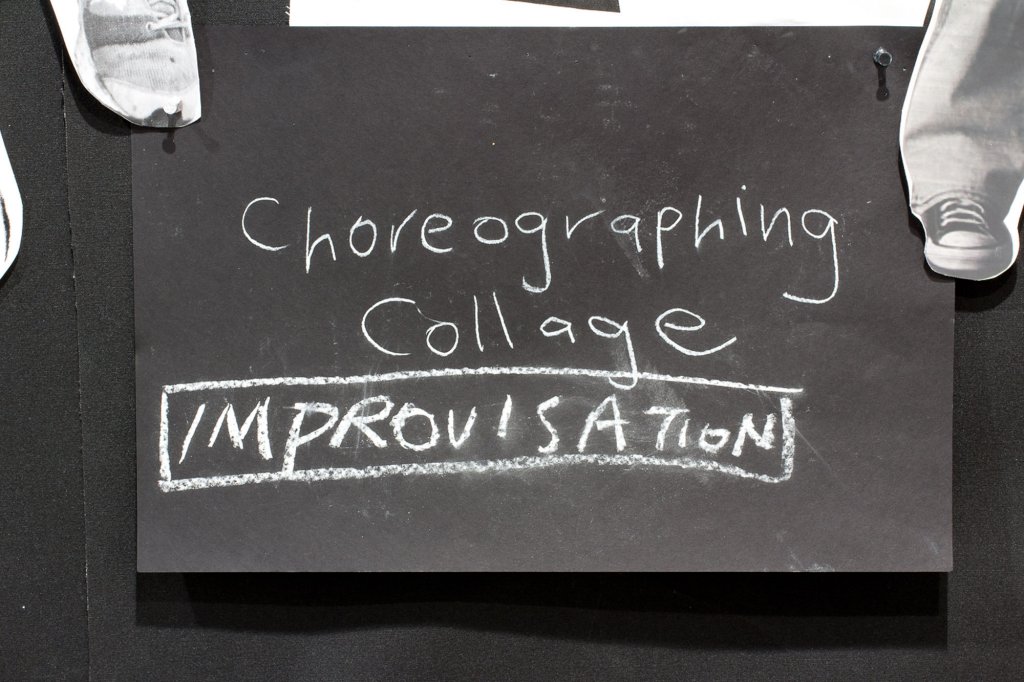 Choreographing
Collage
IMPROVISATION